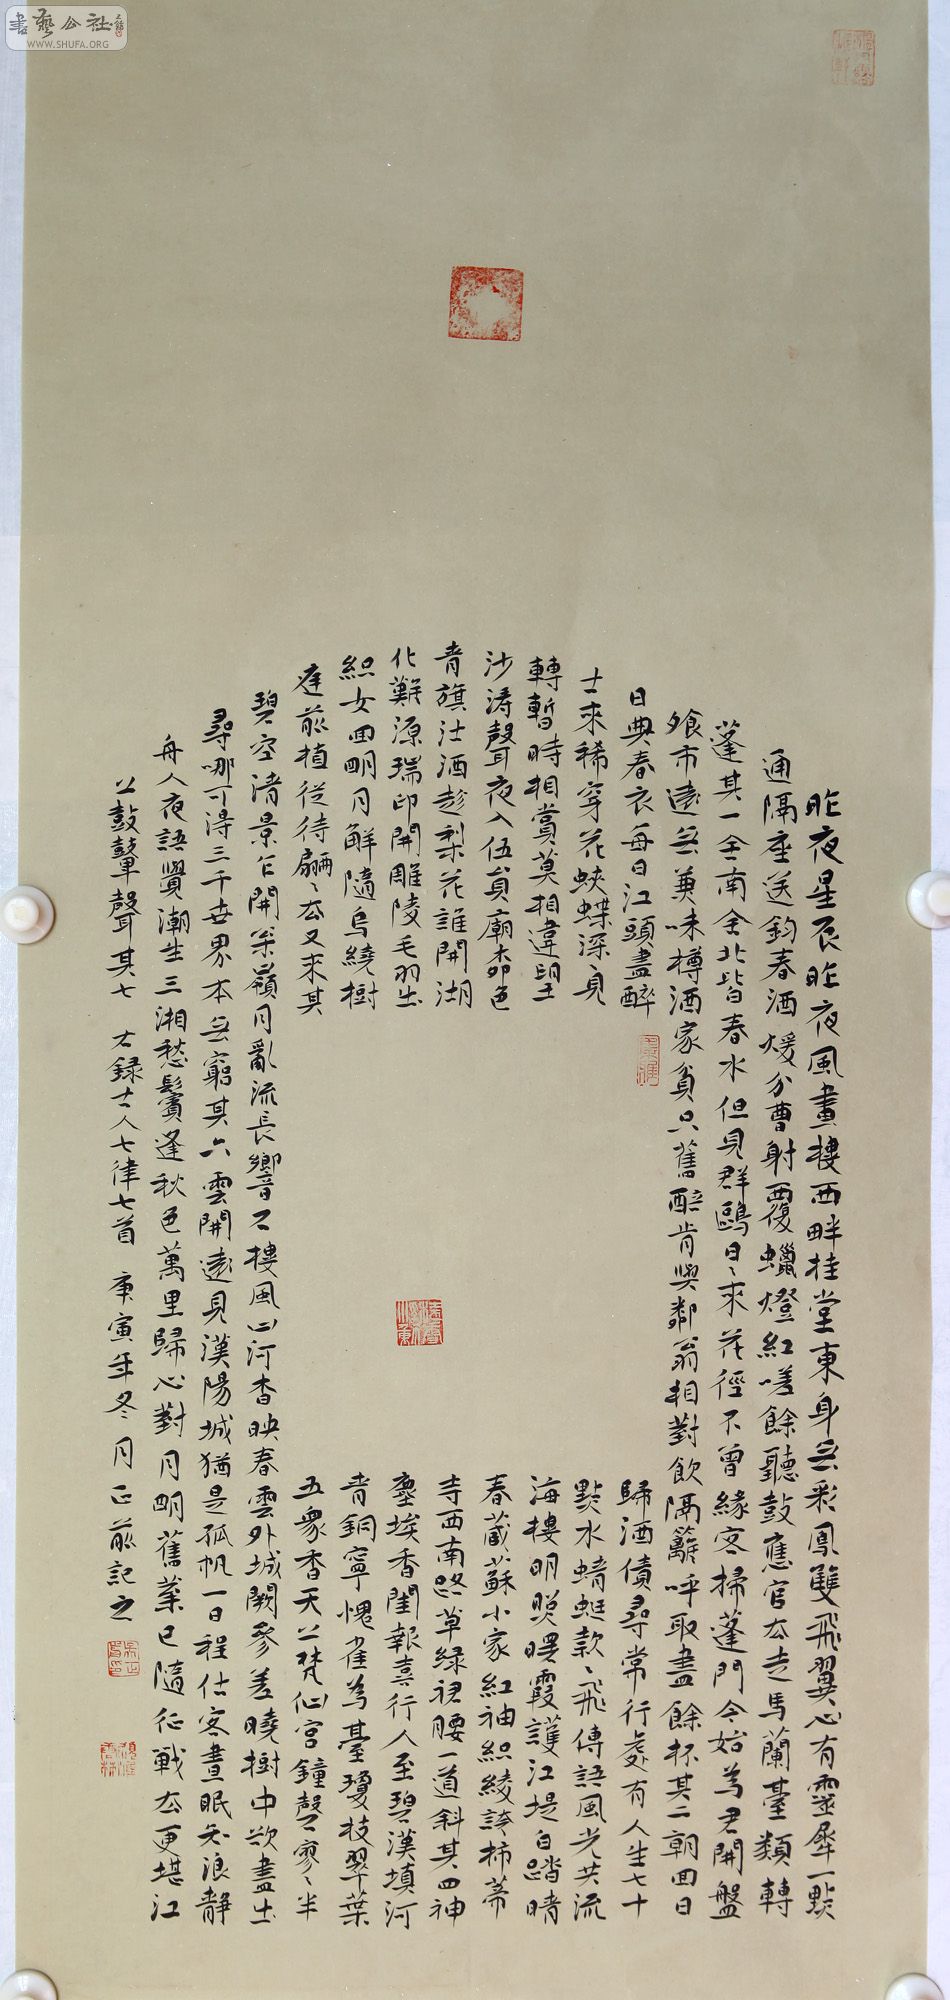 書藝公社
WWW.SHUFA.ORG
昨夜星辰昨夜風畫樓西畔桂堂東身無彩鳳雙飛翼心有靈犀一點
通隔座送鈎春酒煖分曹射覆蠟燈紅嗟餘聽鼓應官去走馬蘭臺類轉
蓬其一舍南舍北皆春水但見群鷗日〻來花徑不曾緣客掃蓬門今始為君開盤
飧市遠無兼味樽酒家貧只舊醅肯與鄰翁相對飲隔籬呼取盡餘杯其二朝回日
日典春衣每日江頭盡醉
歸酒債尋常行處有人生七十
古來稀穿花蛺蝶深見
點水蜻蜓款〻飛傳語風光共流
轉暫時相賞莫相違望
海樓明照曙霞護江堤白踏晴
沙濤聲夜入伍員廟柳色
春藏蘇小家紅袖織綾誇柿蒂
青旗沽酒趁梨花誰開湖
寺西南路草綠裙腰一道斜其四神
化難源瑞印開雕陵毛羽出
塵埃香閨報喜行人至碧漢填河
織女回明月解隨烏繞樹
青銅寧愧雀為臺瓊枝翠葉
庭前植從待翩〻去又來其
五衆香天上梵仙宮鐘磬寥〻半
碧空清景乍開嶺月亂流長響石樓風山河杳映春雲外城闕參差曉樹中欲盡出
尋哪可得三千世界本無窮其六雲開遠見漢陽城猶是孤帆一日程估客晝眠知浪靜
舟人夜語覺潮生三湘愁鬢逢秋色萬里歸心對月明舊業已隨征戰去更堪江
上鼓鼙聲其七 右錄古人七律七首 庚寅年冬月正前記之